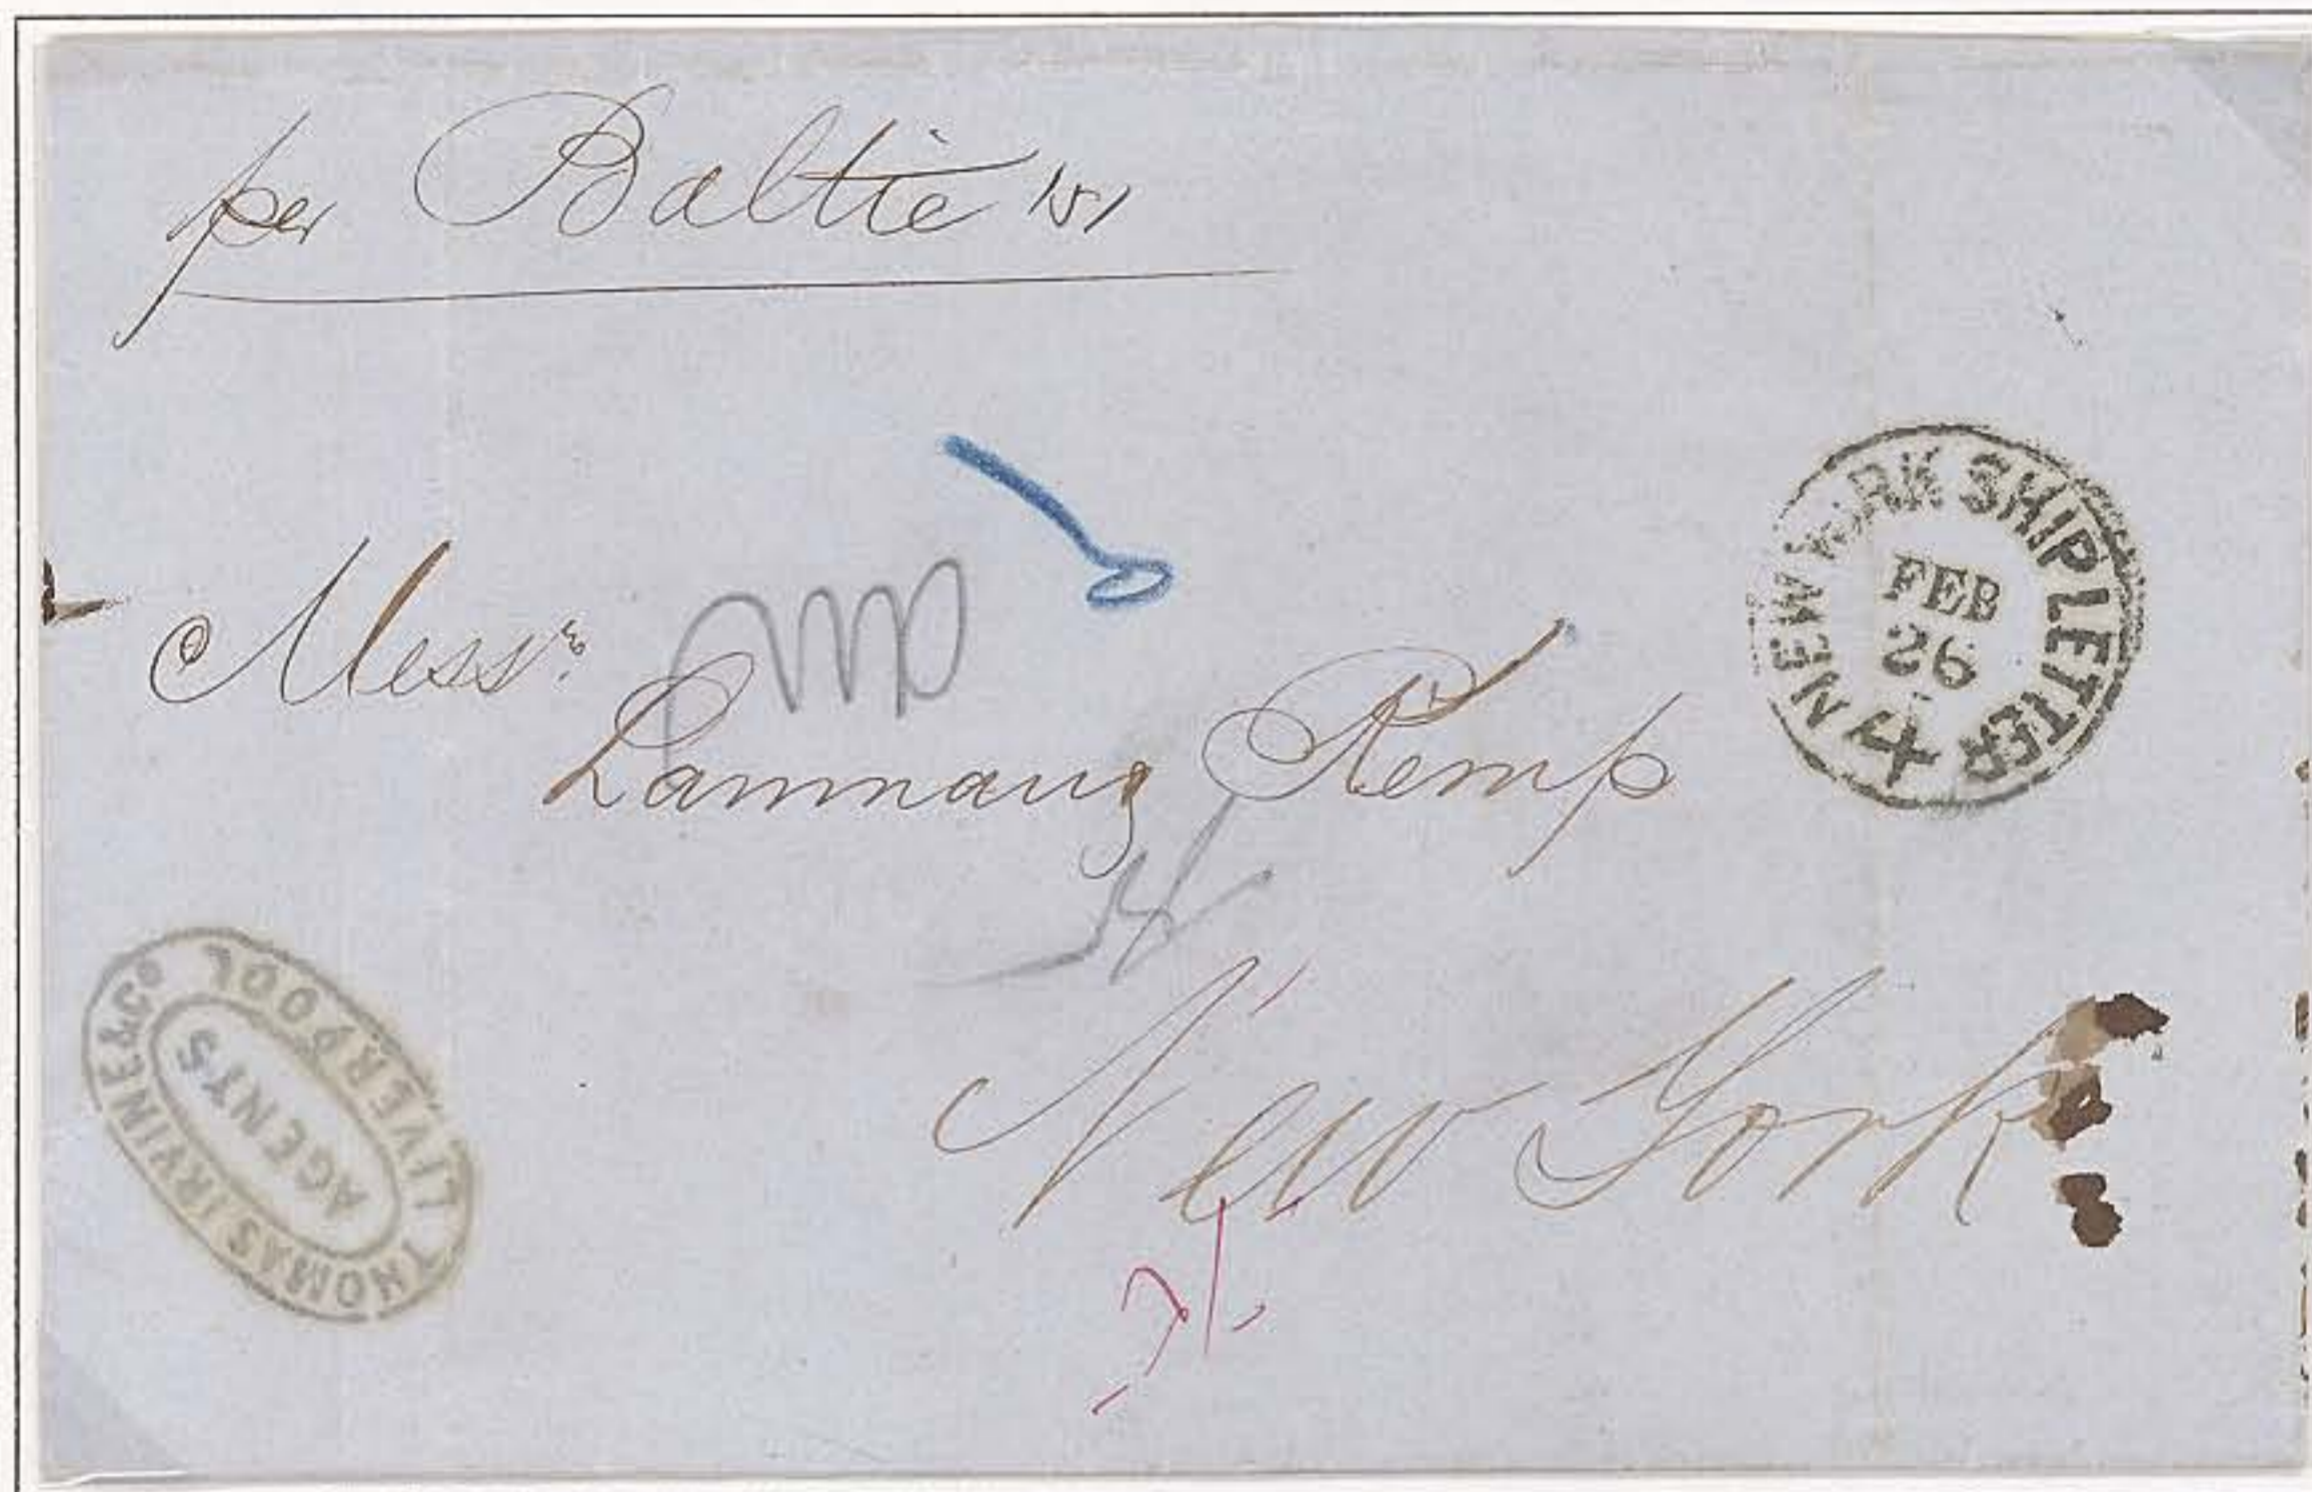 per Baltic
Messrs.
Lanman & Kemp
New York
NEW YORK SHIP LETTER
FEB
26
4
THOMAS IRVINE & CO
AGENTS
LIVERPOOL